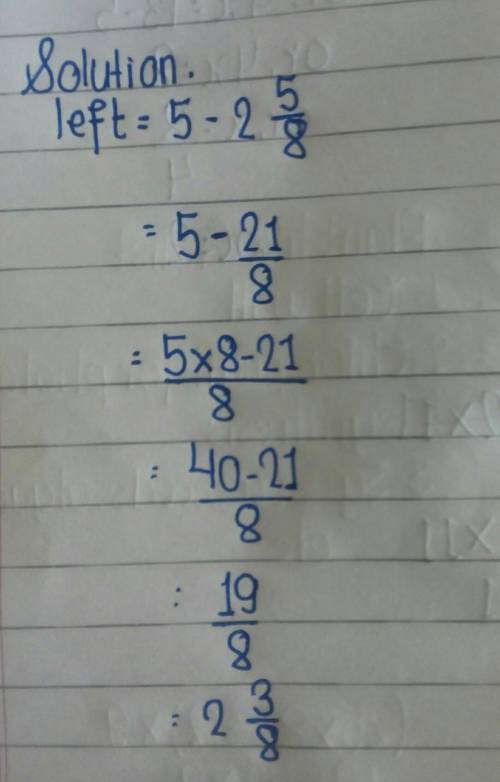 Solution.
left = 5 - 2 5/8
= 5 - 21/8
= 5×8-21/8
= 40-21/8
: 19/8
= 2 3/8